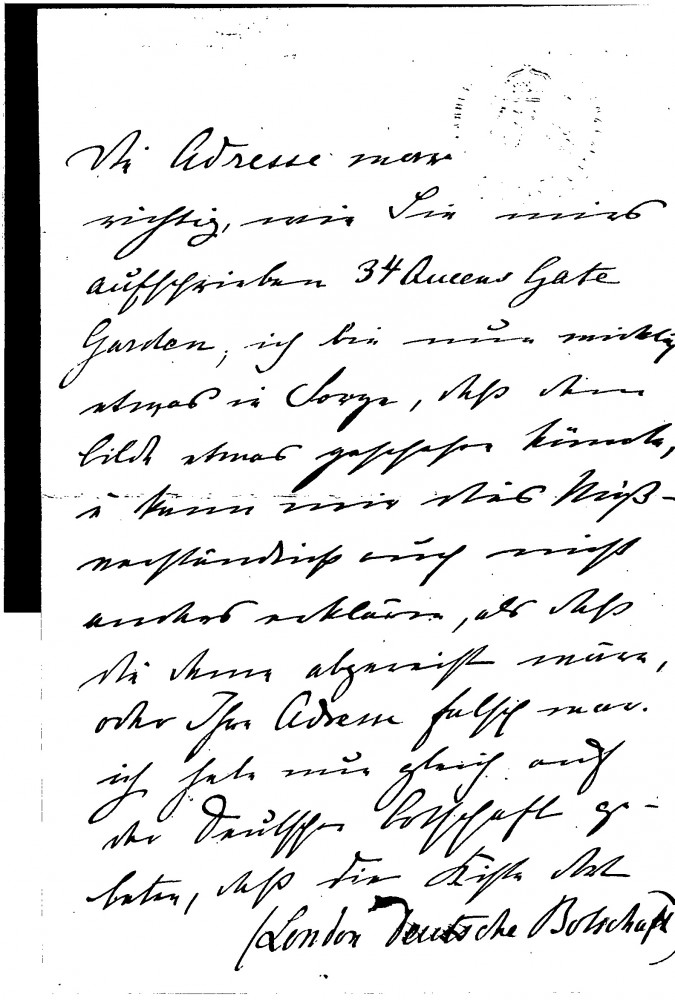 Die Adresse war
richtig, wie Sie mirs
aufschrieben 34 Queens Gate
Garden, ich bin nun wirklich
etwas in Sorge, daß dem
bilde etwas geschehen könnte,
u kann mir dies Miß-
verständniß auch nicht
anders erklären, als daß
die Dame abgereist wäre,
oder Ihre Adresse falsch war.
ich habe nun gleich auf
der Deutschen botschaft ge-
beten, daß die Kiste dort
(London Deutsche Botschaft)